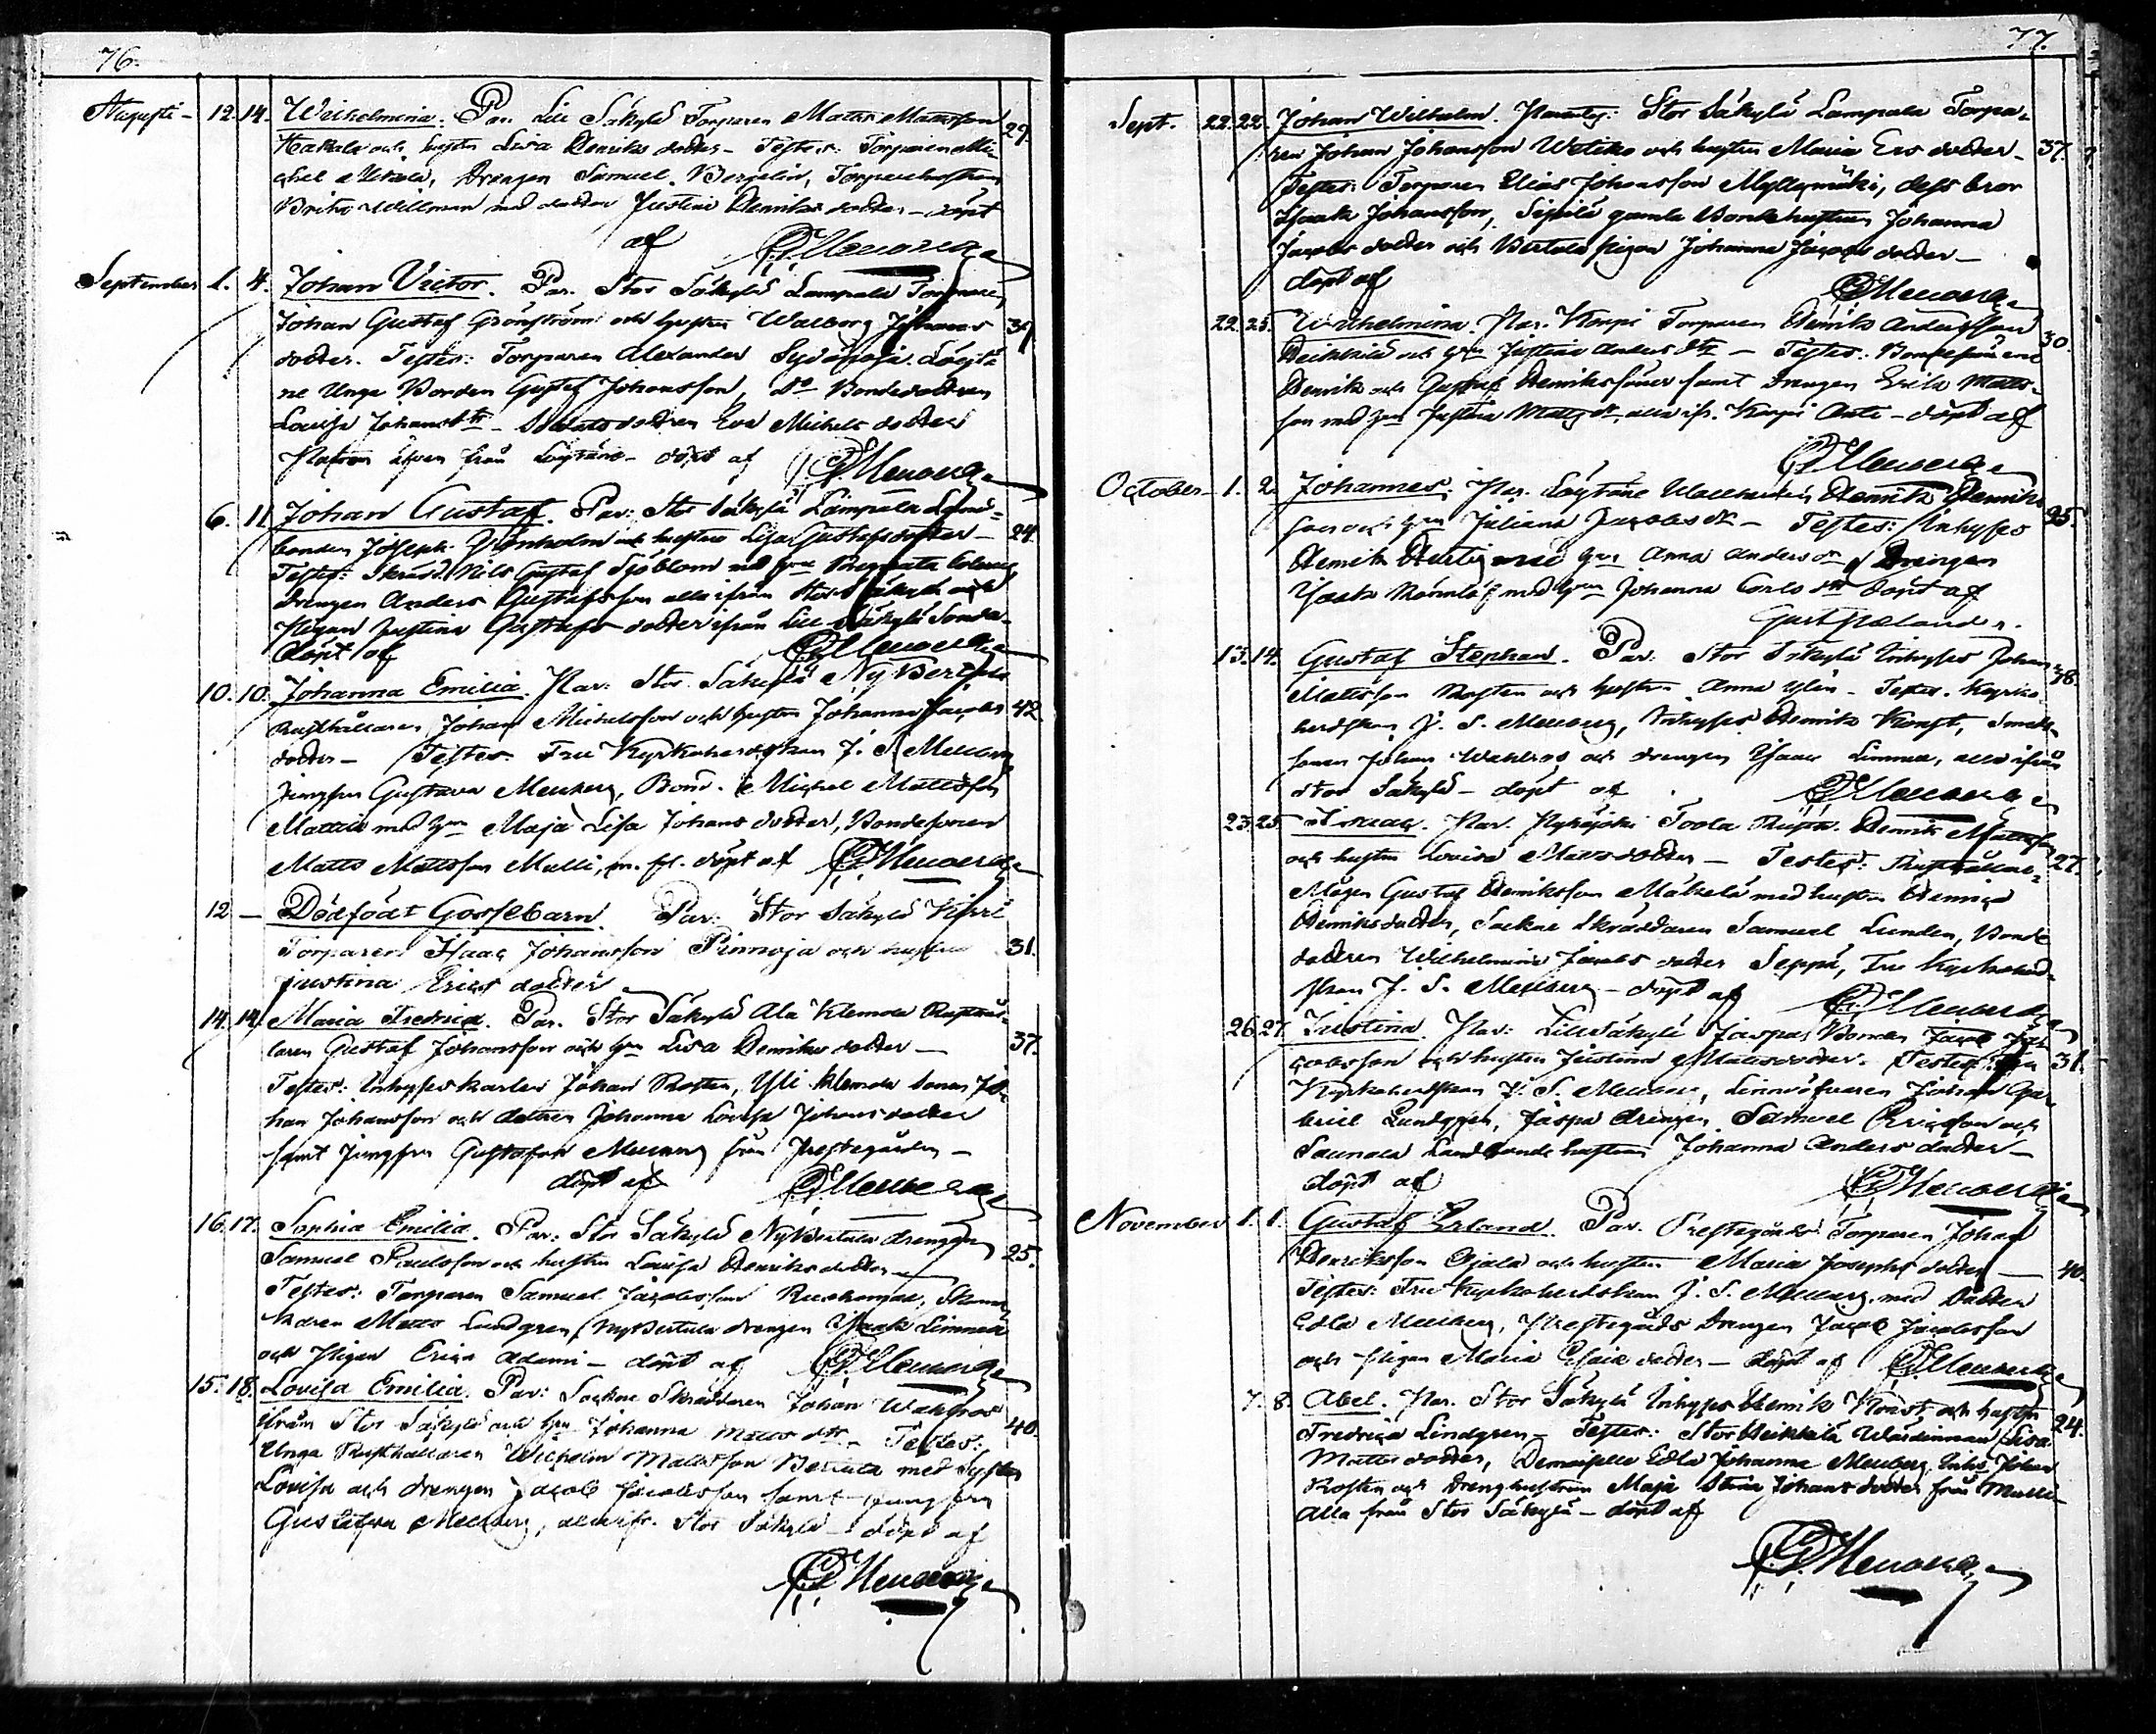 76.
Augusti - 12. 14. Wilhelmina. Par. Lill Säkylä Torparen Matts Mattsson 29.
Hakala och hustru Lisa Henriks dotter - Testes: Torparen Mi-
chel, Drengen Samuel Bergelin, Torparehustrun
Brita Willman med dotter Justina Henriks dotter - döpt
af
September 1. 4. Johan Victor. Par. Stor Säkylä Lampala Torparen
Johan Gustaf Grönström och hustru Walborg Johans
dotter. Testes: Torparen Alexander Sydänoja. Löytä-
ne Unga Bonden Gustaf Johansson, do Bondedottren
Lovisa Johansdtr - dottren Eva Michels dotter
äfven från Löytäne - döpt af
6. 11. Johan Gustaf. Par: Stor Säkylä Lampala Land-
bonden Joseph Grönholm och hustru Lisa Gustafsdotter - 24.
Testes: Skrädd. Nils Gustaf Sjöblom med hru
drengen Anders Gustafsson alla ifrån Stor Säkylä och
Pigan Justina Gustafs dotter ifrån Lill Säkylä
döpt af
10. 10. Johanna Emilia. Par: Stor Säkylä Ny Bertula
Rusthållaren Johan Michelsson och hustru Johanna Jacobs 42.
dotter - Testes. Fru Kyrkoherdskan J. S. Meuberg
Jungfru Gustava Meuberg, Bond. Michel Mattsson
Mattila med hru Maja Lisa Johans dotter, Bondesonen
Matts Mattsson Mulli, m. fl. döpt af
12 - Dödfödt Gossebarn. Par: Stor Säkylä Kirri
Torparen Isaac Johansson Pinnoja och hustru 31.
Justina Erics dotter
14. 14. Maria Fredrica. Par. Stor Säkylä Ala Klemola Rusthål-
laren Gustaf Johansson och hru Lisa Henriks dotter - 37.
Testes: Inhyseskarlen Johan Rosten, Yli Klemola sonen Jo-
han Johansson och dottren Johanna Lovisa Johans dotter
samt Jungfru Gustafva Meuberg från Prestegården -
döpt af
16. 17. Sophia Emilia. Par: Stor Säkylä NyBertula drengen
Samuel Paulsson och hustru Lovisa Henriks dotter 25.
Testes: Torparen Samuel Jacobsson,
Matts Lundgren, NyBertula drengen Isaak Limnell
och Pigan Erica Adami - döpt af
15. 18. Lovisa Emilia. Par: Sockne Skräddaren Johan Wahlroos
ifrån Stor Säkylä och hru Johanna Matts dtr - Testes: 40.
Unga Rusthållaren Wilhelm Mattsson Bertula med Syster
Lovisa och drengen Jacob Jacobsson samt jungfru
Gustafva Meuberg, alla ifr. Stor Säkylä - döpt af
77.
Sept. 22. 22. Johan Wilhelm. Par: Stor Säkylä Lampala Torpa-
ren Johan Johansson Wetikko och hustru Maria Ers dotter - 37.
Testes: Torparen Elias Johansson Myllymäki, dess bror
Isaak Johansson, Sipilä gamla Bondehustrun Johanna
Jacobs dotter och Bertula pigan Johanna Jacobs dotter -
döpt af
22. 25. Wilhelmina. Par. Korpi Torparen Henrik Andersson
Heikkilä och hru Justina Anders dtr - Testes. Bondesönerne 30.
Henrik och Gustaf Henrikssöner samt drengen Erik Matts-
son med hru Justina Matts dr alla ifr. Korpi - döpt af
October - 1. 2. Johannes. Par. Löytäne Henrik Henriks
son och hru Juliana Jacobs dr - Testes: Inhyses 25.
Henrik med hru Anna Anders dr Drengen
Isaak med hru Johanna Carls dtr döpt af
Gust. Pælander.
13. 14. Gustaf Stephan. Par: Stor Säkylä Inhyses Johan
Mattsson Rosten och hustru Anna - Testes. Kyrko- 38.
herdskan J. S. Meuberg, Inhyses Henrik Konst, Smed-
sonen Johan Wahlroos och drengen Isaac Limnell, alla ifrån
Stor Säkylä - döpt af
23. 25. Par. Pyhäjoki Toola Rusth. Henrik Mattsson
och hustru Lovisa Mattsdotter - Testes: 27.
Mågen Gustaf Henriksson Mäkelä med hustru
Henriksdotter, Sockne Skräddaren Samuel Lunden, Bonde
dottren Wilhelmina Jacobs dotter Seppä, Fru Kyrkoherd-
skan J. S. Meuberg - döpt af
26. 27. Justina. Par: Lill Säkylä Jaspa Bonden Jacob Ja-
cobsson och hustru Justina Mattsdotter. Testes: Fru 31.
Kyrkoherdskan J. S. Meuberg, Linnväfvaren Johan Gab-
briel Lundgren, Jaspa drengen Samuel Ericsson och
Saunala Landbonde hustrun Johanna Anders dotter -
döpt af
November 1. 1. Gustaf Erland. Par. Prestegårds Torparen Johan
Henriksson Ojala och hustru Maria Josephs dotter - 40.
Testes: Fru Kyrkoherdskan J. S. Meuberg, med Dotter
Edla Meuberg, Prestegårds Drengen Jacob Jacobsson
och Pigan Maria Esaie dotter - döpt af
7. 8. Abel. Par. Stor Säkylä Inhyses Henrik Konst och hustru
Fredrica Lindgren - Testes: Stor Heikkilä Wärdinnan Lisa 24.
Matts dotter, Demoiselle Edla Johanna Meuberg, Inh. Johan
Rosten och Drenghustrun Maja Stina Johans dotter från Mulli
Alla från Stor Säkylä - döpt af